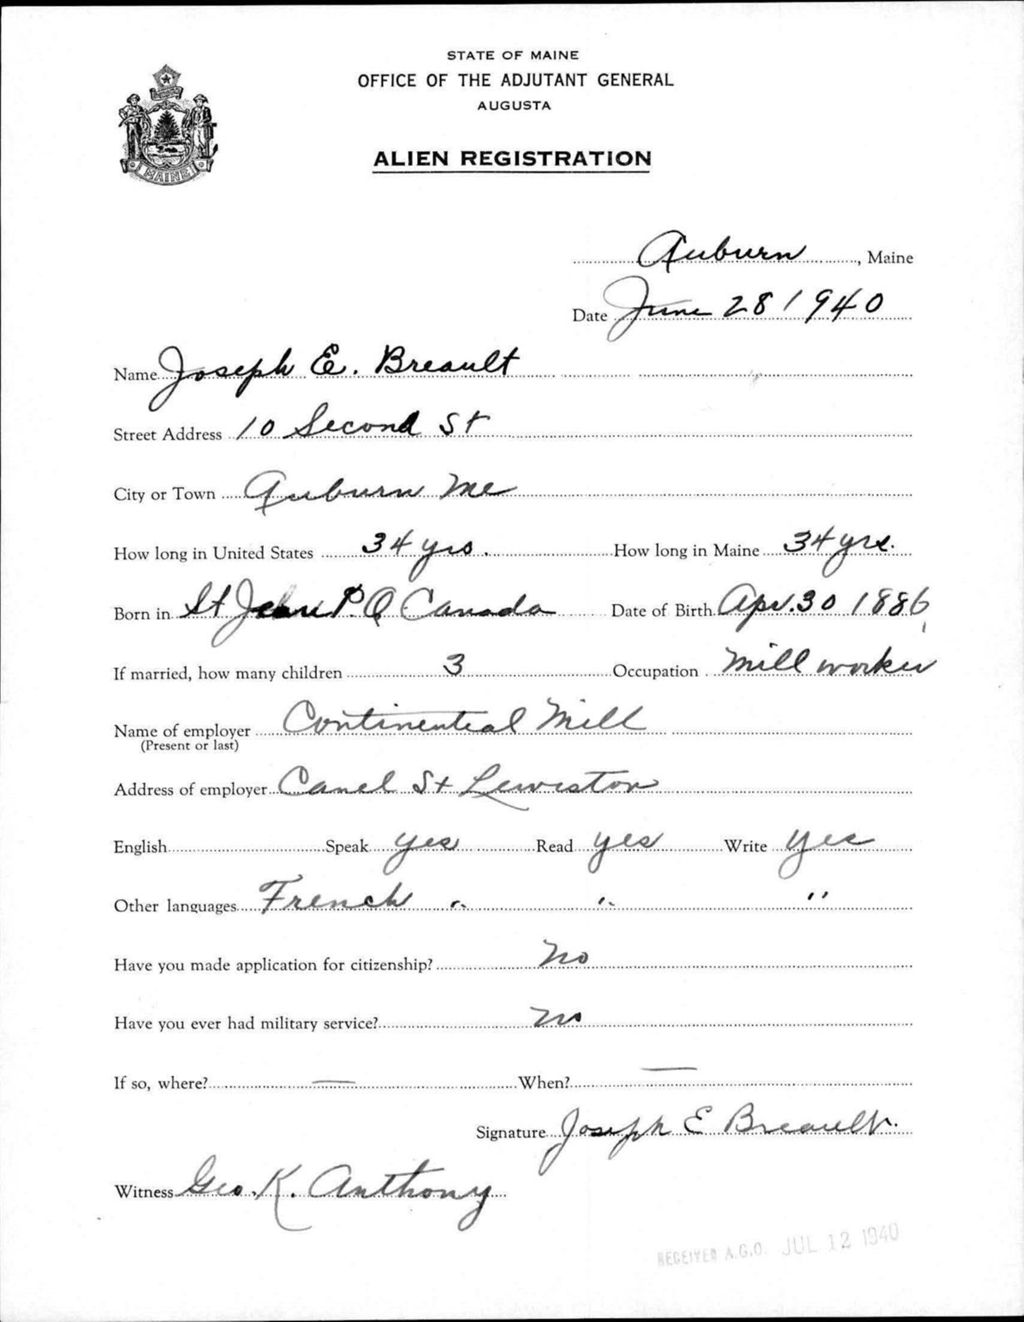 STATE OF MAINE
OFFICE OF THE ADJUTANT GENERAL
AUGUSTA
ALIEN REGISTRATION
MAINE
Auburn, Maine
Date June 28 1940
Name Joseph E. Breault
Street Address 10 Second St
City or Town Auburn Me
How long in United States 34 yrs. How long in Maine 34 yrs.
Born in St Jean P Q Canada Date of Birth Apr. 30 1886
If married, how many children 3 Occupation Mill worker
Name of employer Continential Mill
(Present or last)
Address of employer Canel St Lewiston
English Speak yes Read yes Write yes
Other languages French " " "
Have you made application for citizenship? No
Have you ever had military service? No
If so, where? — When? —
Signature Joseph E Breault.
Witness Geo. K. Anthony
RECEIVED A.G.O. JUL 12 1940